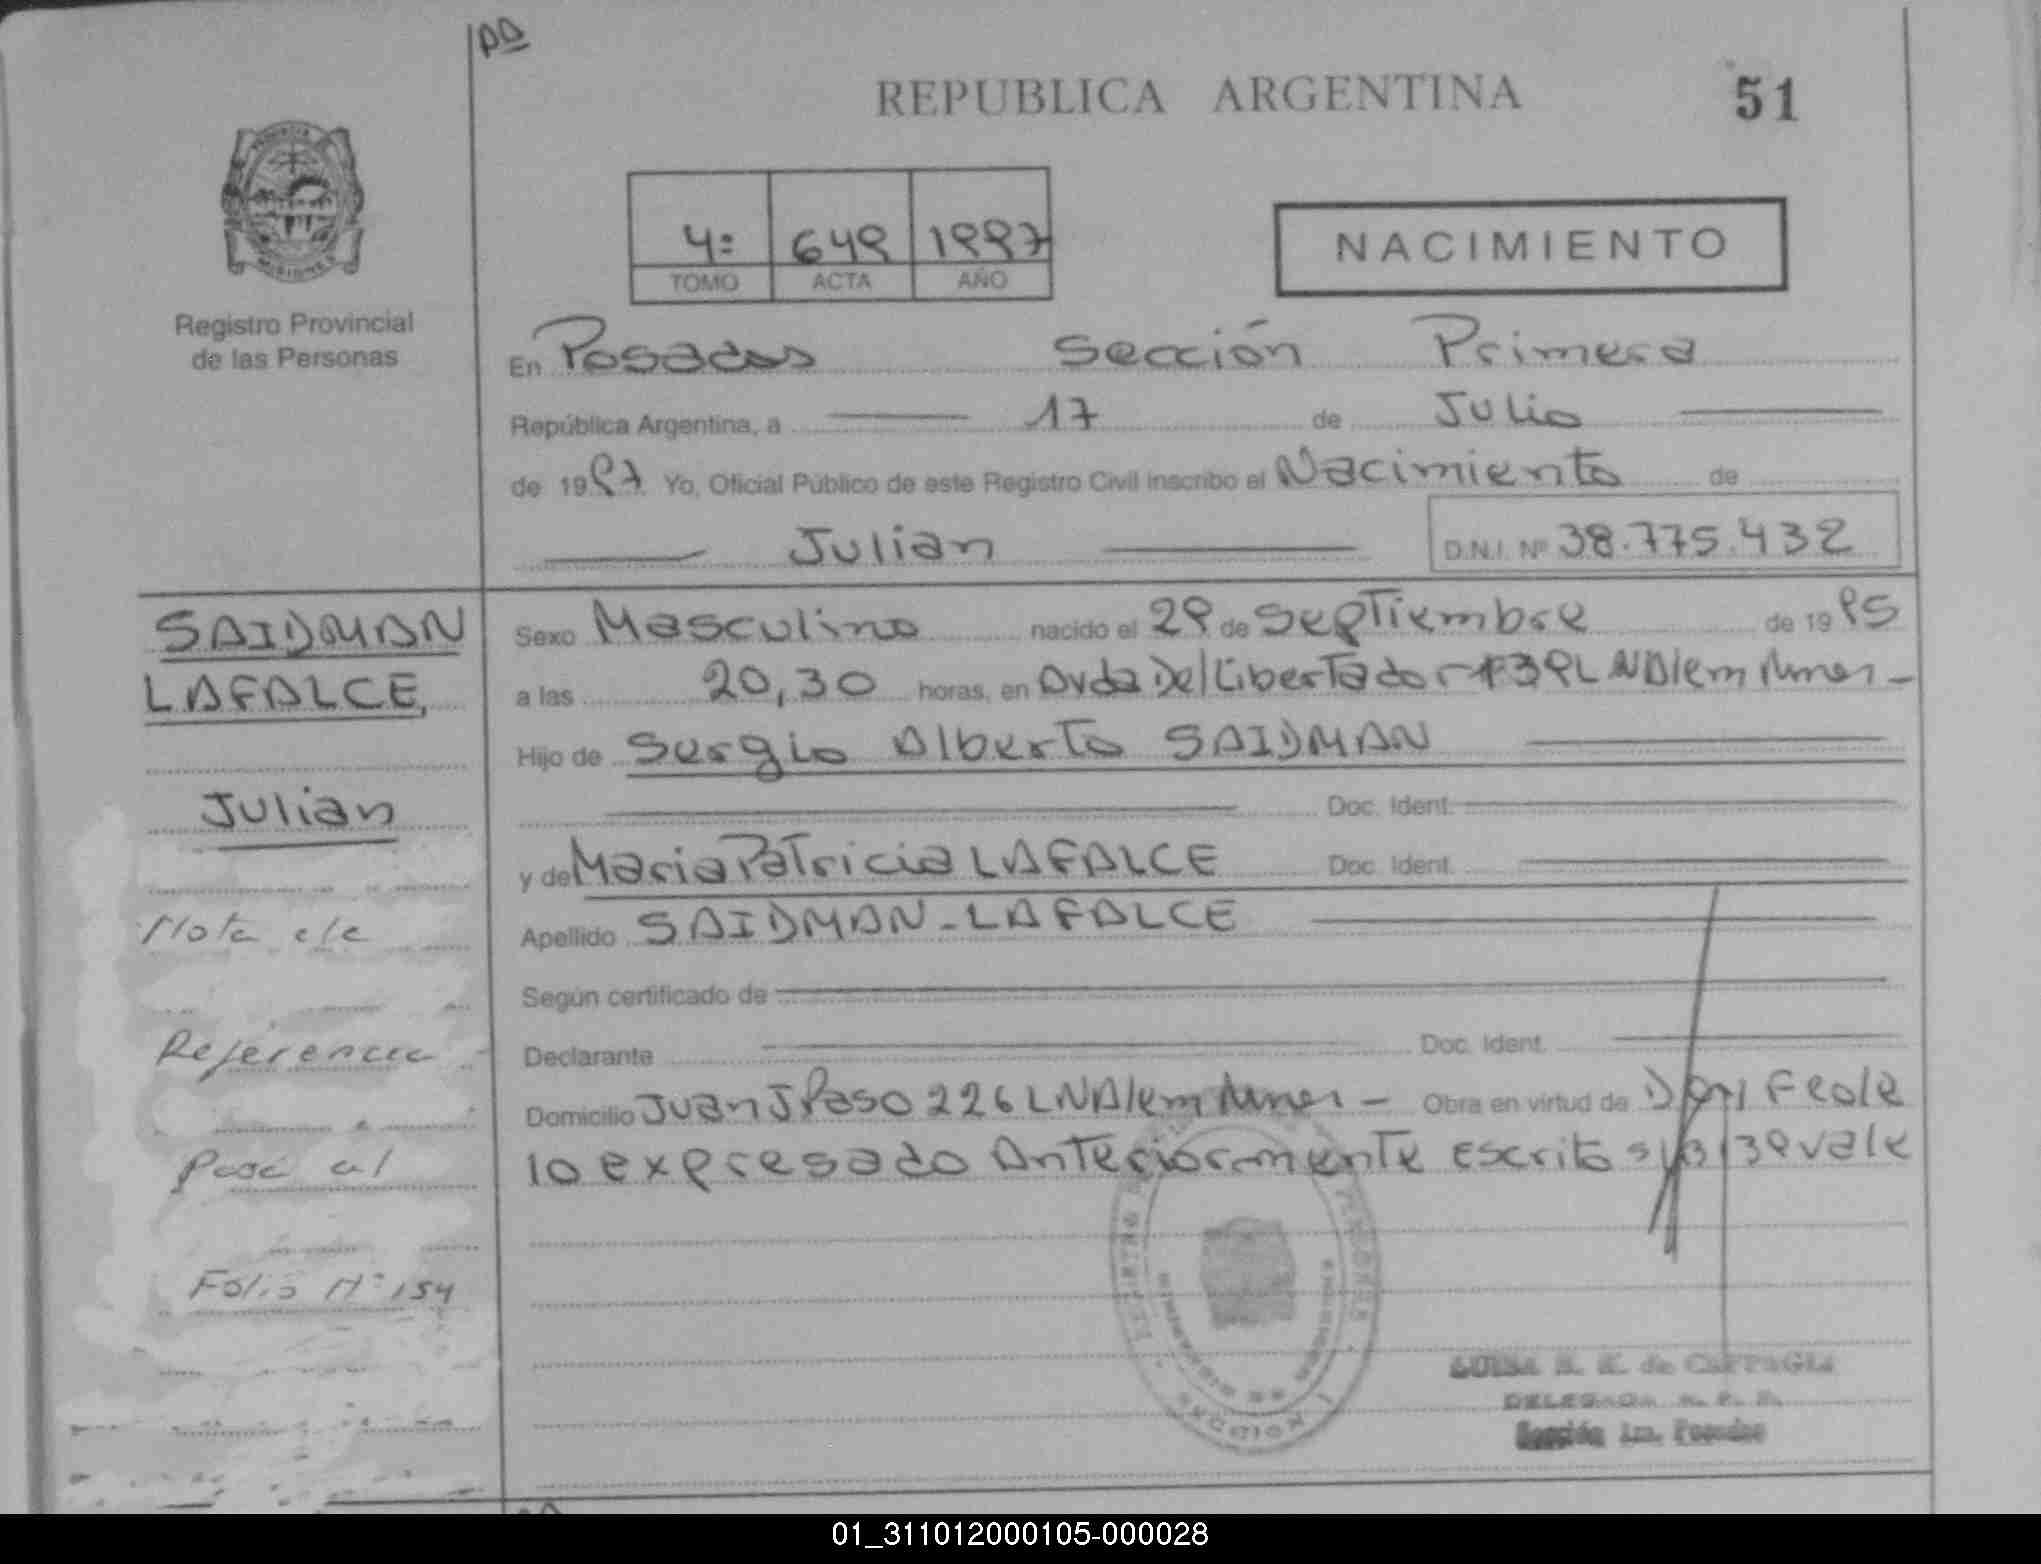 REPUBLICA ARGENTINA
51
4: 649 1997
TOMO ACTA AÑO
NACIMIENTO
MISIONES
Registro Provincial
de las Personas
En Posadas Sección Primera
República Argentina, a 17 de Julio
de 1997 Yo, Oficial Público de este Registro Civil inscribo el Nacimiento de
Julian D.N.I. Nº 38.775.432
SAIDMAN
LAFALCE,
Julian
Nota de
Referencia
Pasa al
Folio Nº 154
Sexo Masculino nacido el 29 de Septiembre de 1995
a las 20,30 horas, en Avda Del Libertador 139 L N Alem
Hijo de Sergio Alberto SAIDMAN
Doc. Ident.
y de Maria Patricia LAFALCE Doc. Ident.
Apellido SAIDMAN-LAFALCE
Según certificado de
Declarante Doc. Ident.
Domicilio Juan J Paso 226 L N Alem Obra en virtud de
lo expresado Anteriormente Escrito vale
de
DELEGADA
Sección 1ra. Posadas
01_311012000105-000028